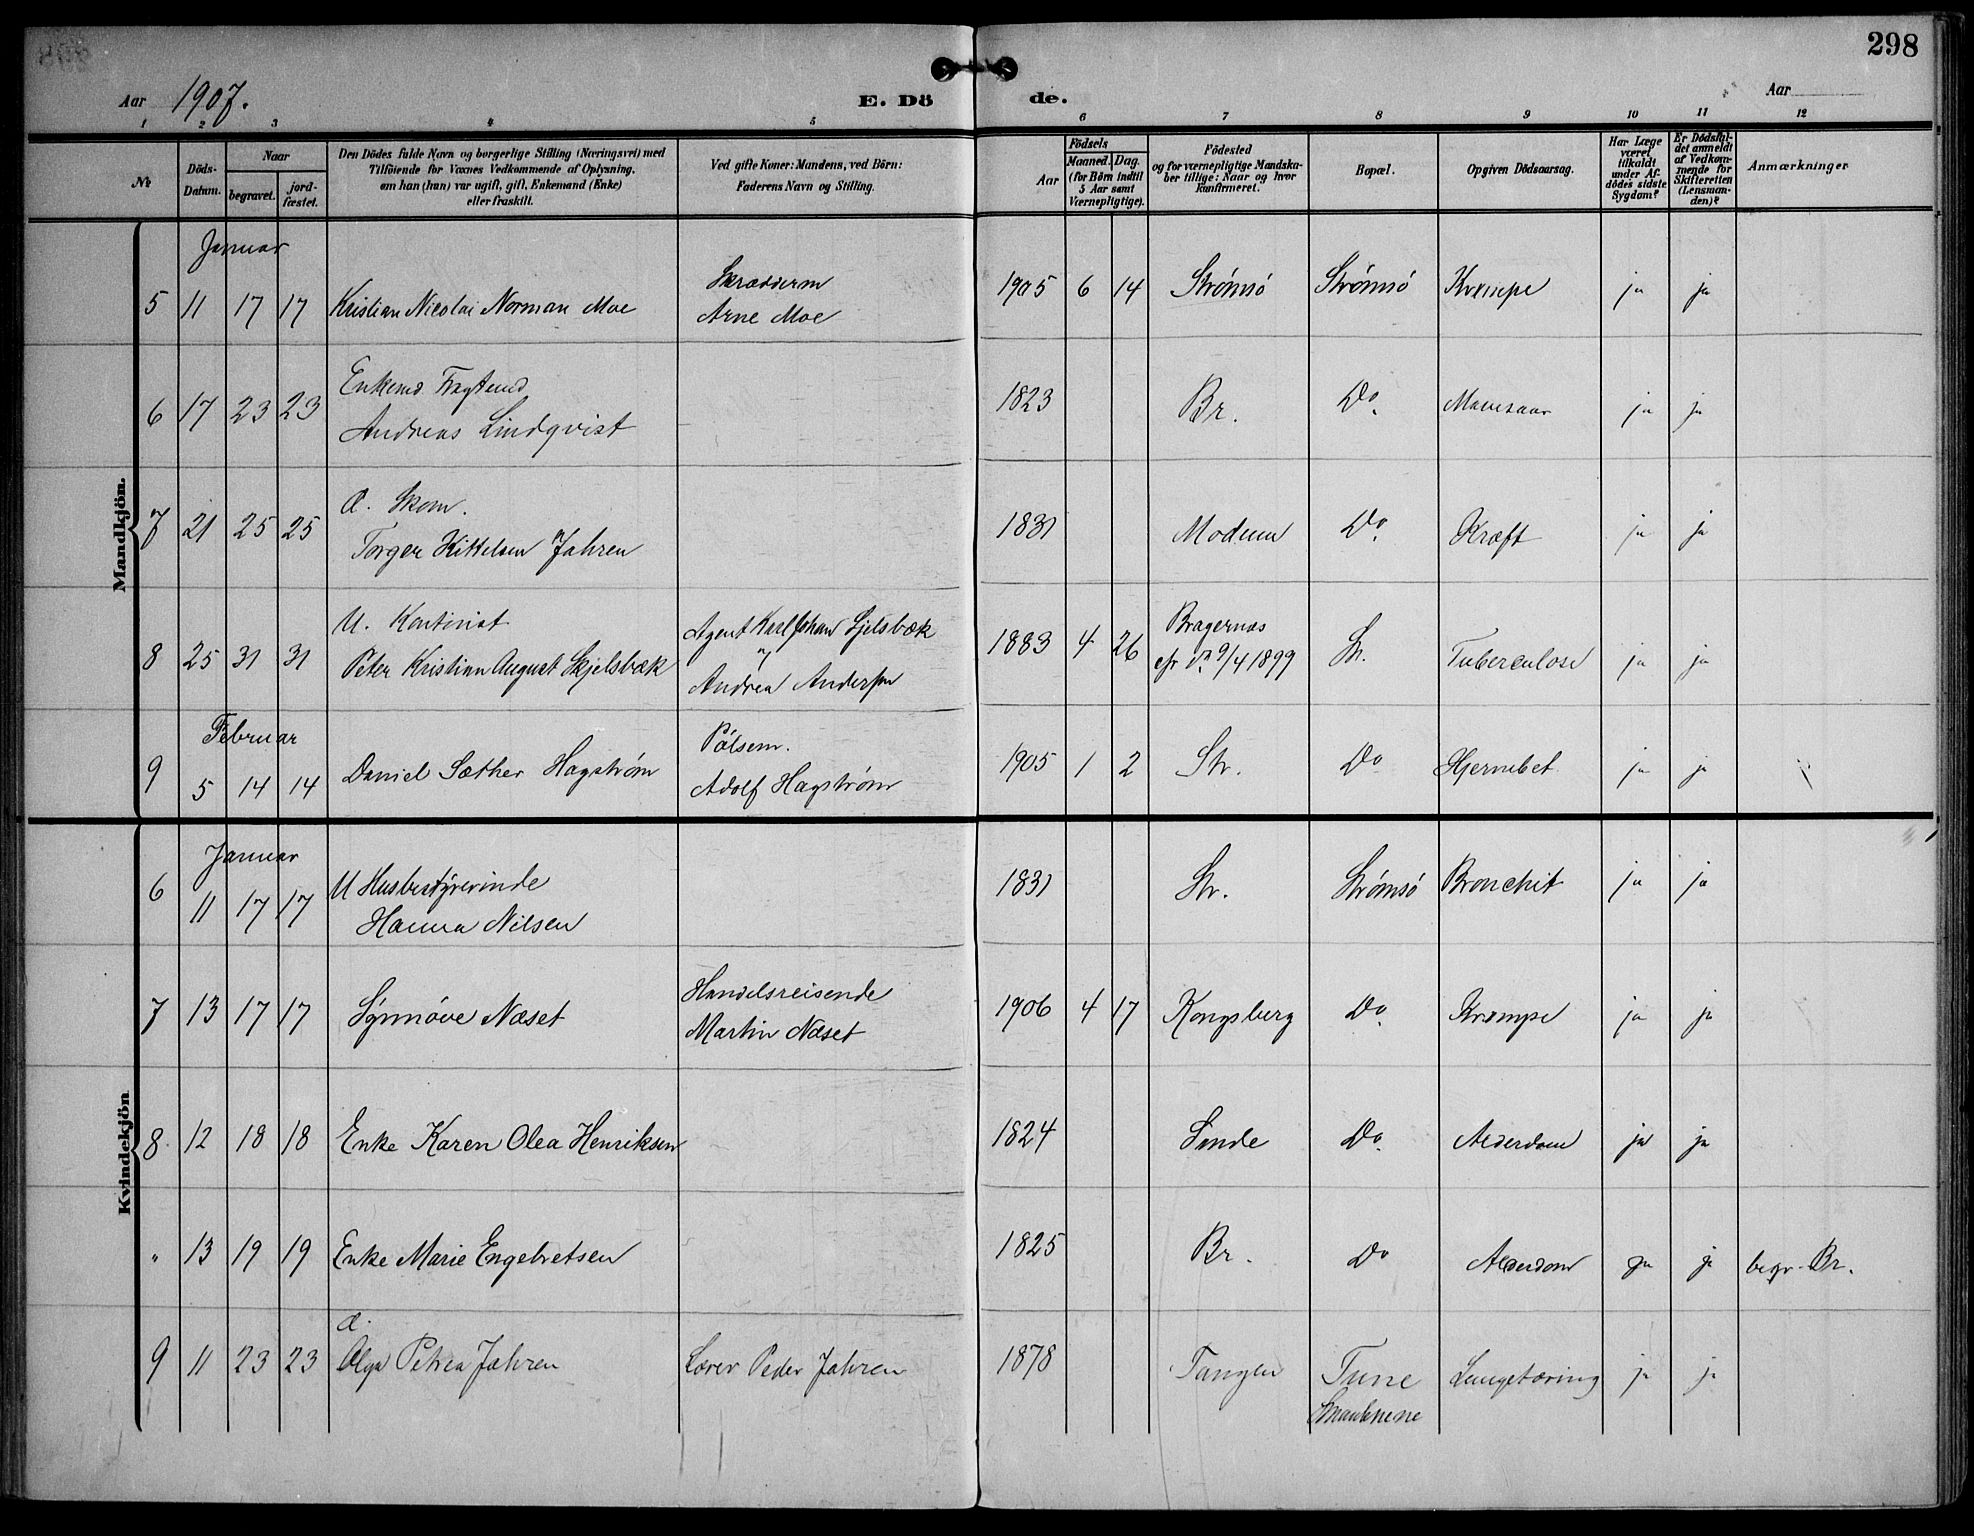 298
Aar 1907.
E. Dö
de.
Aar
1 2 3 4 5 6 7 8 9 10 11 12
No
Döds-Datum.
Naar
begravet.
jord-fæstet.
Den Dödes fulde Navn og borgerlige Stilling (Næringsvei) med
Tilföiende for Voxnes Vedkommende af Oplysning,
om han (hun) var ugift, gift, Enkemand (Enke)
eller fraskilt.
Ved gifte Koner: Mandens, ved Börn:
Faderens Navn og Stilling.
Aar
Födsels
Maaned. Dag.
(for Börn indtil
5 Aar samt
Værnepligtige).
Födested
og for værnepligtige Mandska-
ber tillige: Naar og hvor
konfirmeret.
Bopæl.
Opgiven Dödsaarsag.
Har Læge
været
tilkaldt
under Af-
dödes sidste
Sygdom?
Er Dödsfal-
det anmeldt
af Vedkom-
mende for
Skifteretten
(Lensman-
den)?
Anmærkninger
Mandkjön.
Januar
5 11 17 17 Kristian Nicolai Norman Moe
Skrædderm
Arne Moe
1905 6 14 Strømsö Strömsö Krampe ja ja
Enkemd
6 17 23 23 Andreas Lindqvist 1823 Br. Do ja ja
G. Skom.
7 21 25 25 Torger Kittelsen Jahren 1831 Modum Do Kræft ja ja
U. Kontorist
8 25 31 31 Peter Kristian August Skjelsbæk
Agent Karl Johan Sjelsbæk
Andrea Andersen
1883 4 26 Bragernæs
9/4 1899 Str. Tuberculose ja ja
Februar
9 5 14 14 Daniel Sæther Hagström
Pölsem.
Adolf Hagström
1905 1 2 Str. Do Hjernebet. ja ja
Kvindekjön
Januar
6 11 17 17 U Husbestyrerinde
Hanna Nilsen
1831 Str. Strömsö Bronchit ja ja
7 13 17 17 Synnöve Næset
Handelsreisende
Martin Næset
1906 4 17 Kongsberg Do Krampe ja ja
8 12 18 18 Enke Karen Olea Henriksen 1824 Sande Do Alderdom ja ja
" 13 19 19 Enke Marie Engebretsen 1825 Br. Do Alderdom ja ja begr. Br.
G.
9 11 23 23 Olga Petrea Jahren Lærer Peder Jahren 1878 Tangen Tune Lungetæring ja ja
Smaalenene